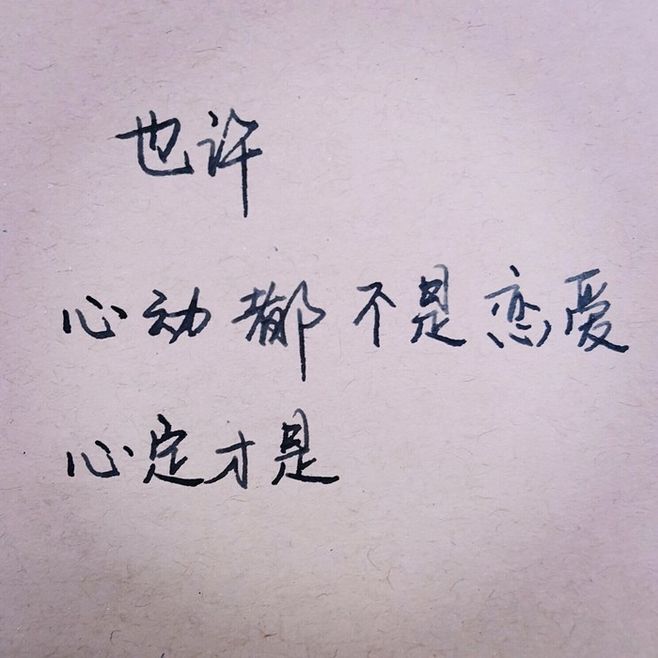 也许
心动都不是恋爱
心定才是